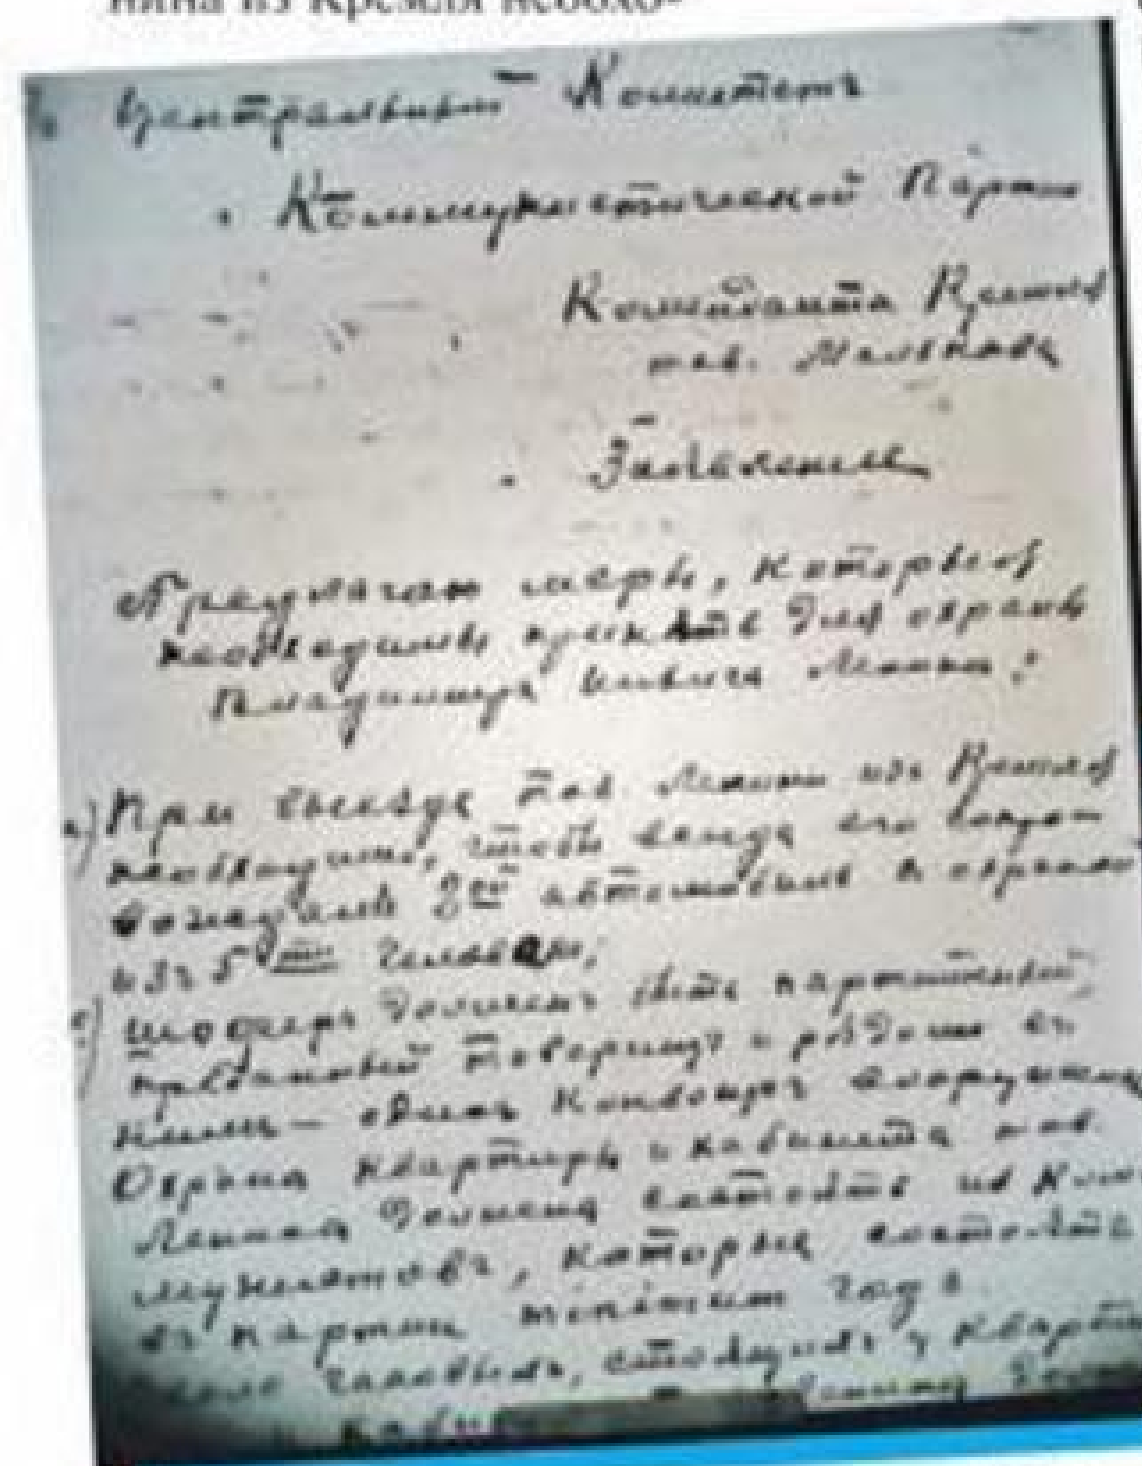 нина из Кремля необхо-
Центральный Комитетъ
Коммунистической Партии
Коменданта Кремля
тов. Малькова
Заявление
Предлагаю меры, которыя
необходимы принять для охраны
Владимира Ильича Ленина:
При выезде тов. Ленина изъ Кремля
необходимо, чтобы всегда его сопро-
вождалъ 2ой автомобиль с охраной
изъ 5ти человек;
шоферъ должен быть партийный,
преданный товарищъ и рядом съ
ним — один конвоиръ вооружен
Охрана квартиры и кабинета тов.
Ленина должна состоять из ком
мунистовъ, которые состоять
въ партии minimum год
часовыхъ, стоящих у кварти